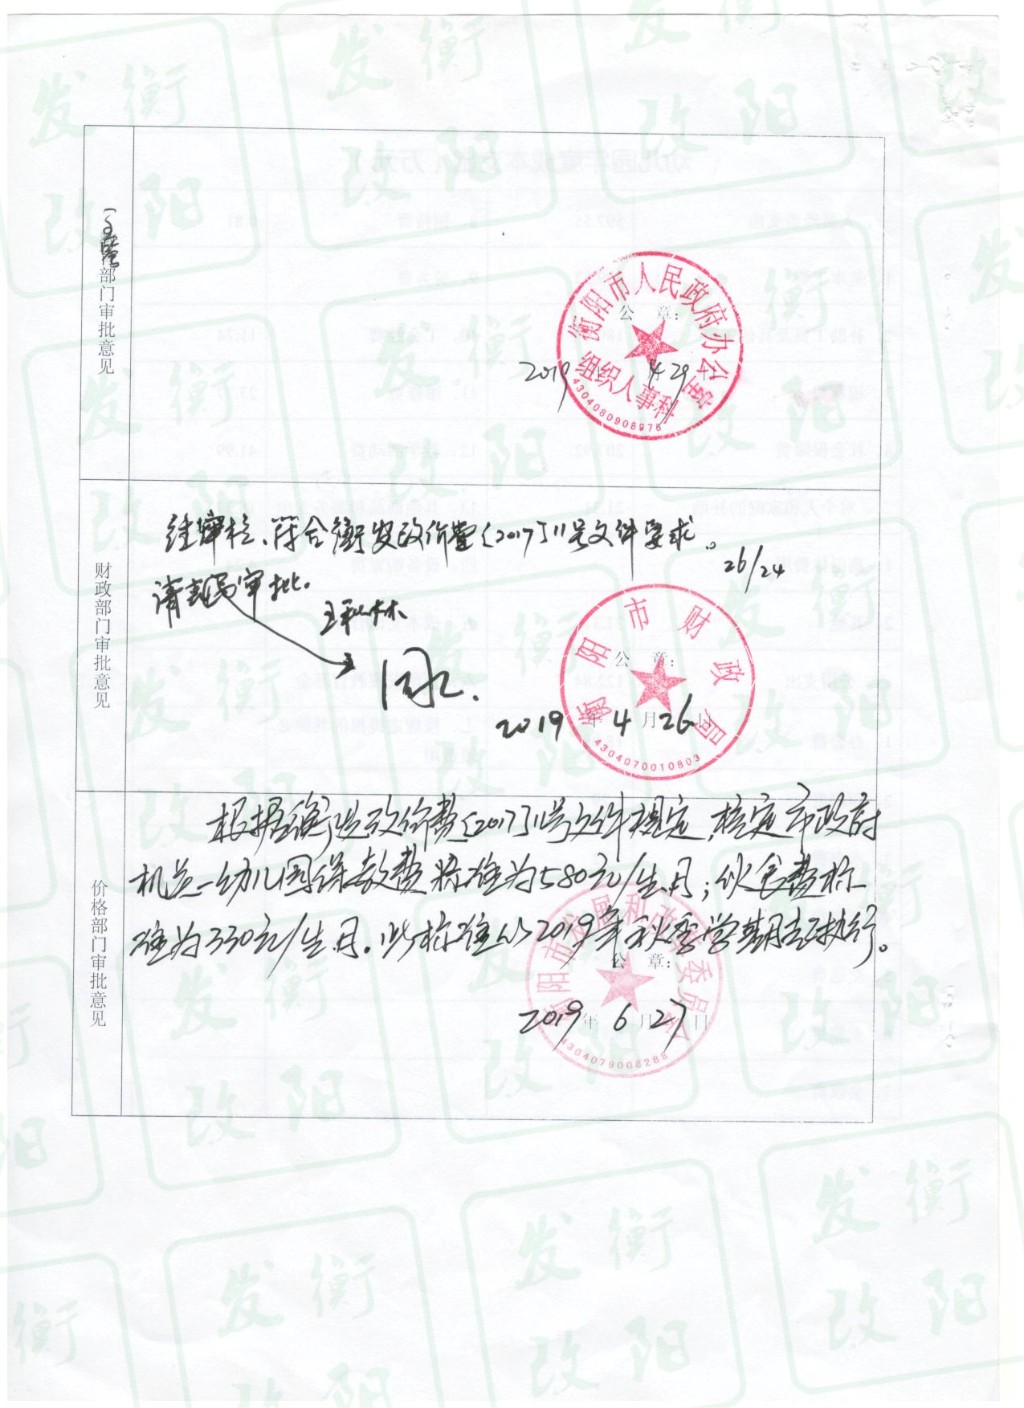 (主管)部门审批意见
衡阳市人民政府办公室
公 章：
2019 4 29
组织人事科
4304080908976
财政部门审批意见
经审核、符合衡发改价费〔2017〕11号文件要求。
26/24
请局审批。
衡阳市财政局
公 章：
2019 4月26
4304070010803
价格部门审批意见
根据衡发改价费〔2017〕11号文件规定，核定市政府
机关一幼儿园保教费标准为580元/生.月；伙食费标
准为330元/生.月。此标准从2019年秋季学期起执行。
衡阳市发展和改革委员会
公 章：
2019年6月27日
4304079008288
衡阳发改